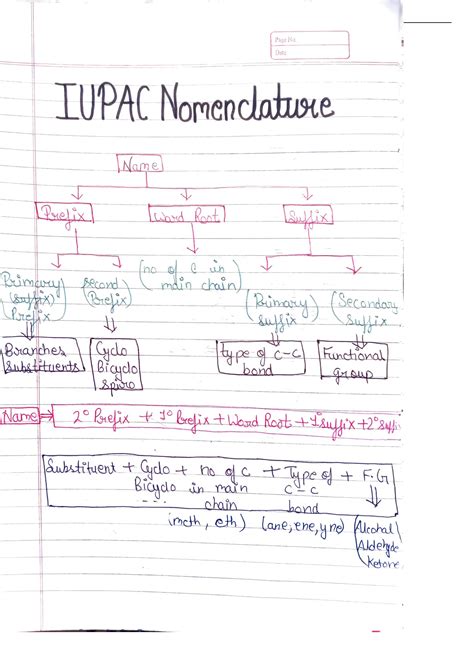 Page No.
Date
IUPAC Nomenclature
Name
Prefix Word Root Suffix
Primary (suffix) Prefix
second (Prefix)
(no of C in main chain)
(Primary suffix
(Secondary suffix
Branches Substituents
Cyclo
Bicyclo
spiro
type of C-C bond
Functional group
Name → 2° Prefix + 1° Prefix + Word Root + 1° suffix + 2° suff
Substituent + Cyclo + no of C + Type of + F.G
Bicyclo in main C-C
--- chain bond
(meth, eth) (ane, ene, yne)
Alcohal
Aldehyde
Ketone